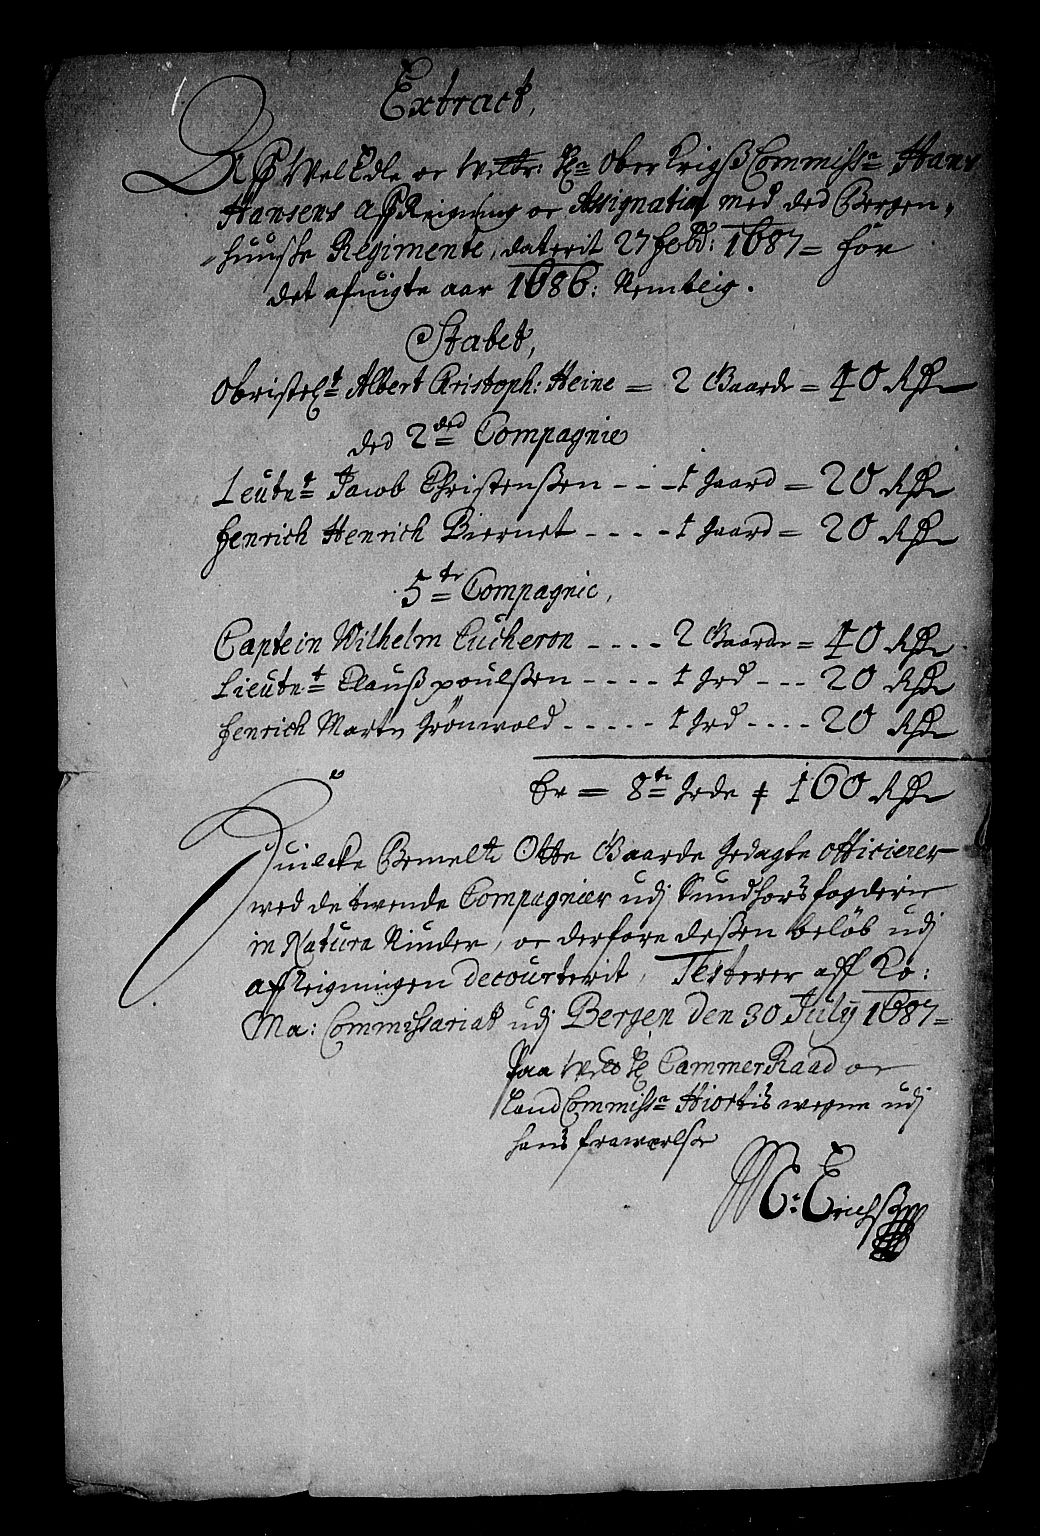 Extract,
Aff Wel Edle oc Velbr: Hr Ober Krigß Commissr Hans
Hansens Affreigning oc Assignation med ded Bergen-
huuske Regimente, daterit 27 Febr: 1687 = for
det afuigte aar 1686: Nemblig.
Stabet,
Obristlt Albert Cristoph: Heine = 2 Gaarde = 40 Rdr
ded 2ded Compagnie
Leutnt Jacob Christenßen - - - 1 Gaard = 20 Rdr
Fenrich Henrich Biernet - - - - 1 Gaard = 20 Rdr
5te Compagnie,
Captein Wilhelm Cucheron - - - - 2 Gaarde = 40 Rdr
Lieutnt Clauß poulßen - - - - 1 Grd - - - 20 Rdr
Fenrich Marten Grönwold - - - - - 1 Grd - - - - 20 Rdr
Er = 8te Grde 160 Rdr
Huilcke Bemelte Otte Gaarde Gedagte officierer
ved de tvende Compagnier udj Sundhors fogderie
in Natura Niuder, oc derfore deßen beløb udj
afreigningen decourterit, Testerer aff Ko:
Ma: Commissariat udj Bergen den 30 Julij 1687=
Paa Hr CammerRaad oc
Land Commissr Hiortis vegne udj
hans fraværelse
Erichßen